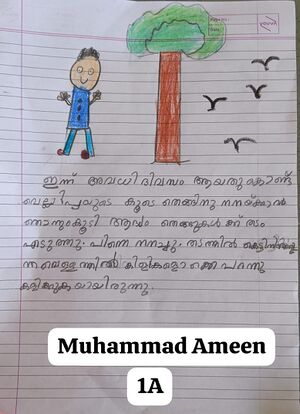 ഇന്ന് അവധി ദിവസം ആയതുകൊണ്ട്
വെല്ലിപ്പവുടെ കൂടെ തെങ്ങിനു നനയ്ക്കാൻ
ഞാനുംകൂടി ആദ്യം തെങ്ങുകൾക്ക് തടം
എടുത്തു. പിന്നെ നനച്ചു. തടത്തിൽ
വെള്ളത്തിൽ കിളികളൊക്കെ പറന്നു
കളിക്കുകയായിരുന്നു.
Muhammad Ameen
1A